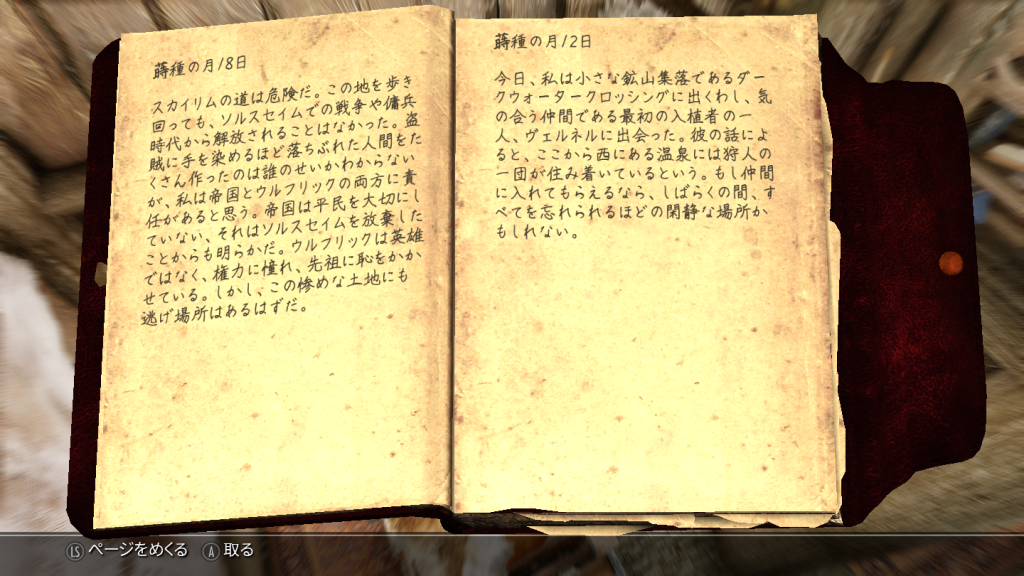 蒔種の月18日
スカイリムの道は危険だ。この地を歩き
回っても、ソルスセイムでの戦争や傭兵
時代から解放されることはなかった。盗
賊に手を染めるほど落ちぶれた人間をた
くさん作ったのは誰のせいかわからない
が、私は帝国とウルフリックの両方に責
任があると思う。帝国は平民を大切にし
ていない、それはソルスセイムを放棄した
ことからも明らかだ。ウルフリックは英雄
ではなく、権力に憧れ、先祖に恥をかか
せている。しかし、この惨めな土地にも
逃げ場所はあるはずだ。
蒔種の月12日
今日、私は小さな鉱山集落であるダー
クウォータークロッシングに出くわし、気
の合う仲間である最初の入植者の一
人、ヴェルネルに出会った。彼の話によ
ると、ここから西にある温泉には狩人の
一団が住み着いているという。もし仲間
に入れてもらえるなら、しばらくの間、す
べてを忘れられるほどの閑静な場所か
もしれない。
LS ページをめくる A 取る